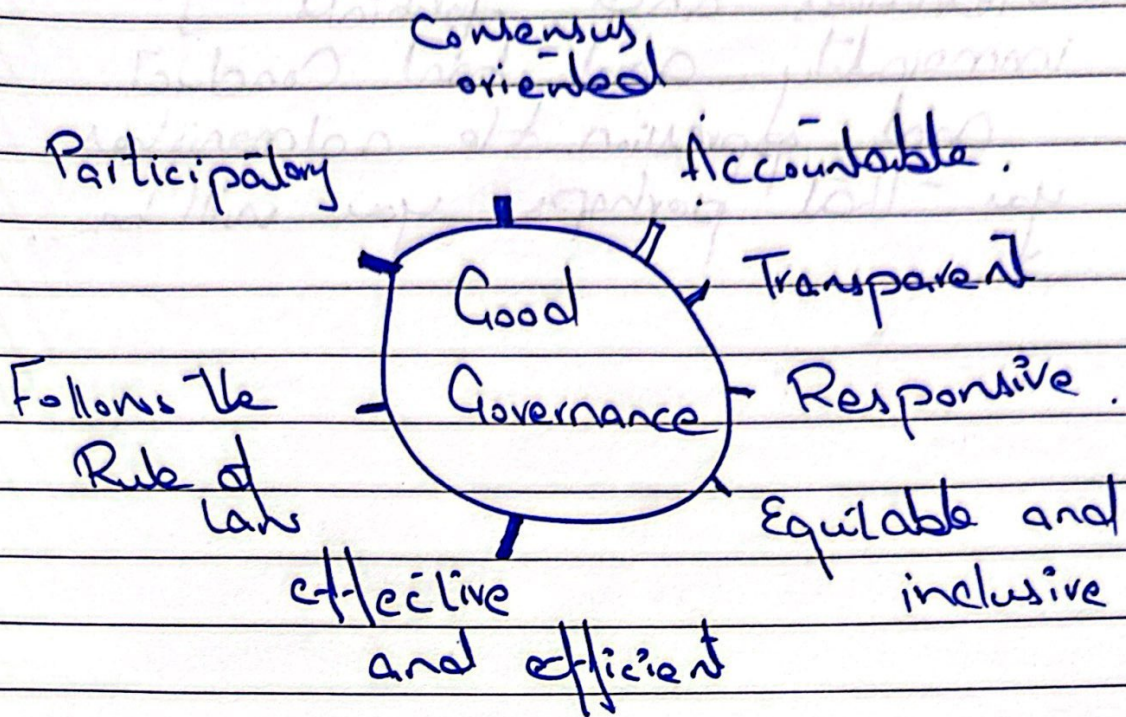 Consensus
oriented
Participatory
Accountable.
Good
Governance
Transparent
Responsive.
Follows the
Rule of
Law
Equitable and
inclusive
effective
and efficient